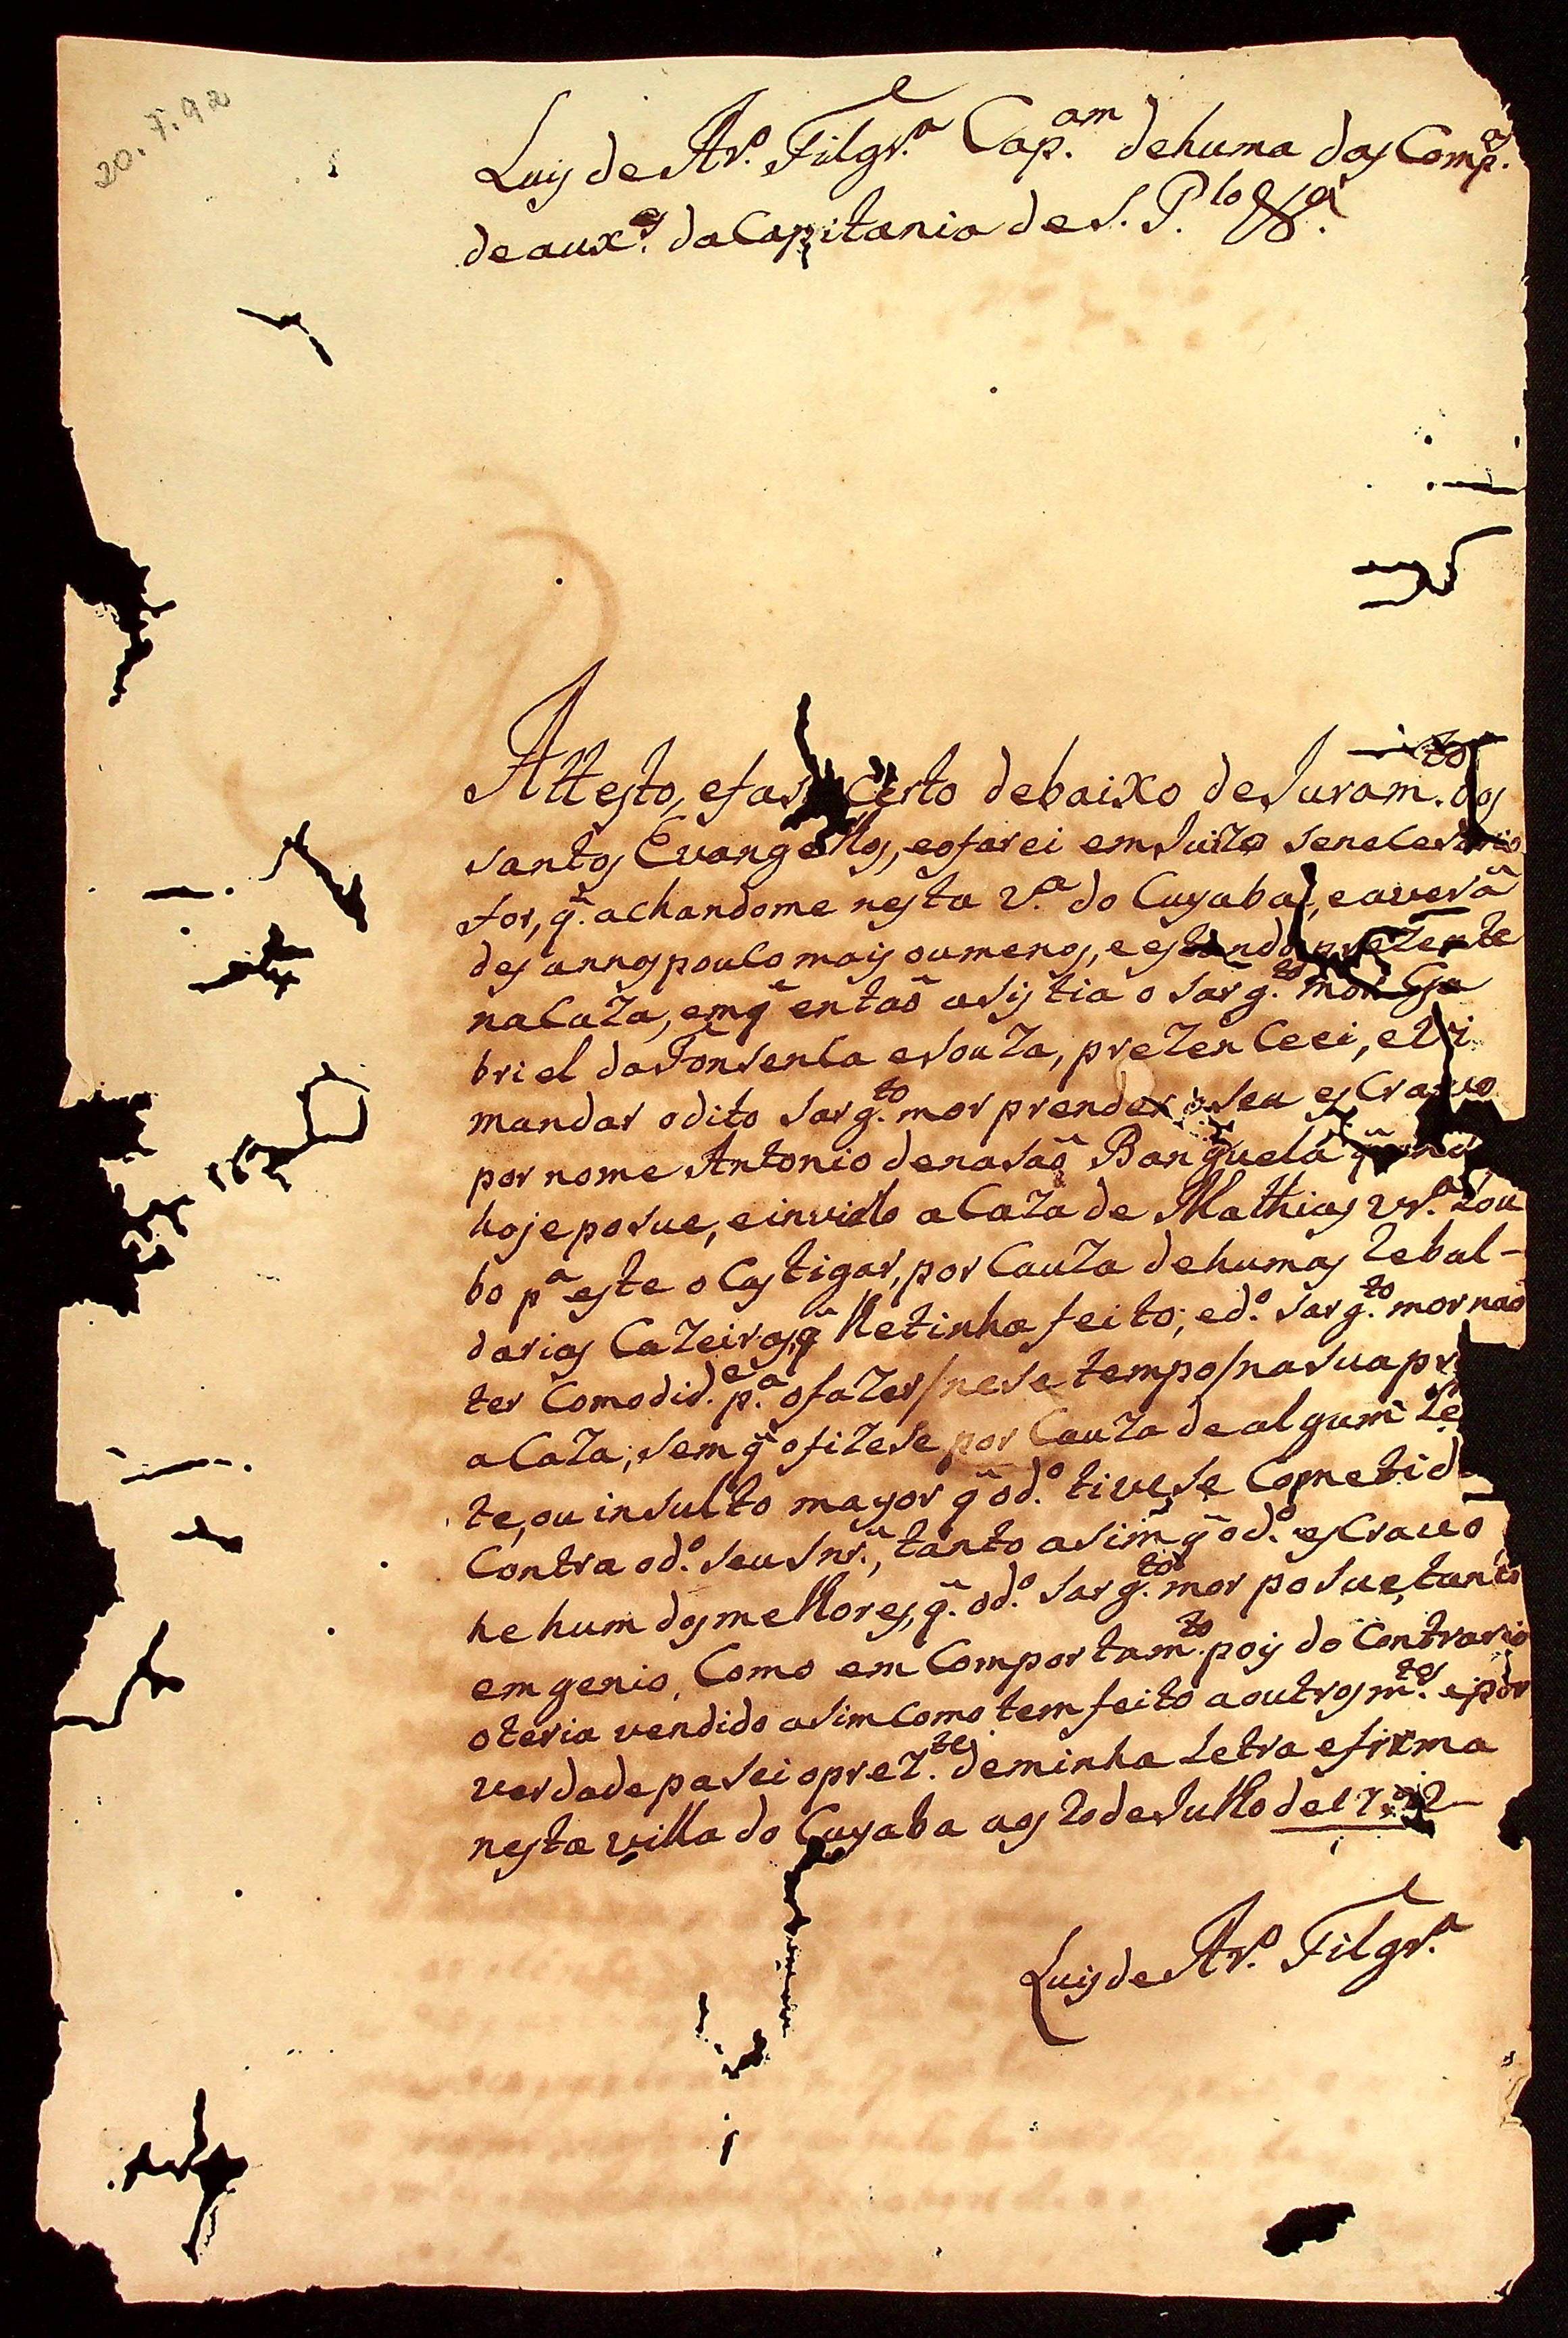 20.7.92
Luis de Ar.º Filgr.ª Cap.am de huma das Comp.as
de aux.es da Capitania de S. P.lo &.ª
Attesto, e fas certo debaixo de Juram.to dos
santos Evangelhos, e o farei em Juizo se necesario
for, q̃. achandome nesta V.ª do Cuyaba, e averã
des annos pouco mais ou menos, e estando prezente
na Caza, em q̃ entaõ asistia o sarg.to mor Ga
briel da Fonseca e Souza, prezenceei, e vi
mandar o dito sarg.to mor prender o seu esCravo
por nome Antonio de nasaõ Banguela q̃ inda
hoje posue, e invialo a Caza de Mathias
bo p.ª este o Castigar, por Cauza de humas Rebal-
darias Cazeiras, q̃ lhe tinha feito; e d.º sarg.to mor naõ
ter Comodid.e p.ª o fazer / nese tempo / na sua
a Caza; sem q̃ o fizese por Cauza de algum
te, ou insulto mayor q̃ o d.º tivese Cometid
Contra o d.º seu Snr.', tanto asim q̃ o d.º esCravo
he hum dos melhores, q̃. o d.º sarg.to mor posue, tanto
em genio, Como em Comportam.to pois do Contrario
o teria vendido asim Como tem feito a outros m.tos e por
verdade pasei o prez.te de minha Letra e firma
nesta villa do Cuyaba aos 20 de Julho de 1792
Luis de Ar.º Filgr.ª